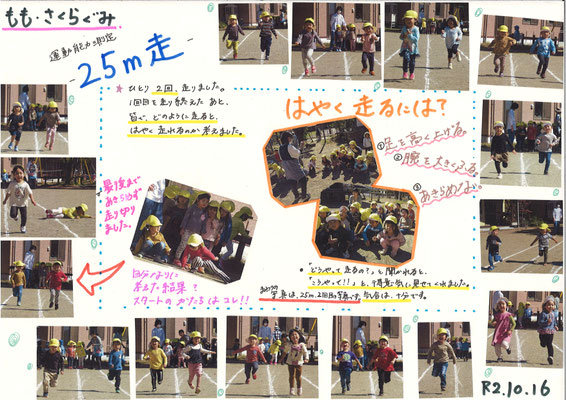 もも・さくらぐみ
運動能力測定
-25m走-
★ひとり2回、走りました。
1回目を走り終えたあと、
皆で、どのように走ると、
はやく走れるのか考えました。
はやく走るには?
①足を高く上げる。
②腕を大きくふる。
③あきらめない。
最後まで
あきらめず
走り切り
ました。
自分なりに
考えた結果?
スタートのカタチはコレ!!
・「どうやって走るの?」と聞かれると、
「こうやって!!」と、得意気に見せてくれました。
写真は、25m、2回目の写真です。気合は、十分です。
R2.10.16